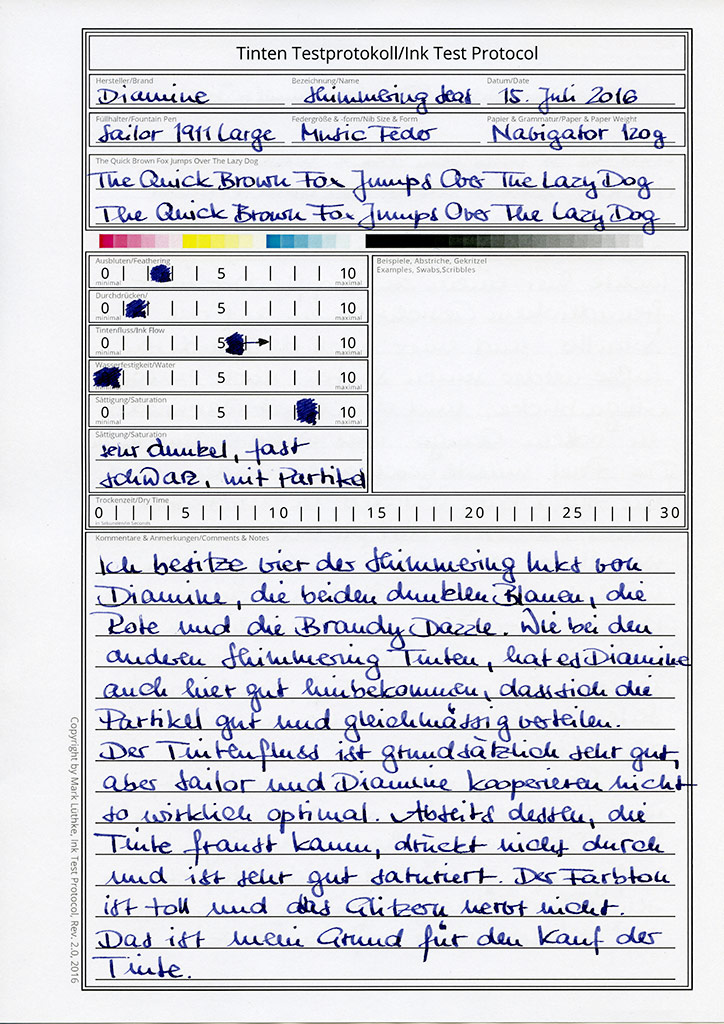 Tinten Testprotokoll/Ink Test Protocol
Hersteller/Brand Bezeichnung/Name Datum/Date
Diamine Shimmering Seas 15. Juli 2016
Füllhalter/Fountain Pen Federgröße & -form/Nib Size & Form Papier & Grammatur/Paper & Paper Weight
Sailor 1911 Large Music Feder Navigator 120g
The Quick Brown Fox Jumps Over The Lazy Dog
The Quick Brown Fox Jumps Over The Lazy Dog
The Quick Brown Fox Jumps Over The Lazy Dog
Ausbluten/Feathering
0 5 10
minimal maximal
Durchdrücken/
0 5 10
minimal maximal
Tintenfluss/Ink Flow
0 5 10
minimal maximal
Wasserfestigkeit/Water
5 10
minimal maximal
Sättigung/Saturation
0 5 10
minimal maximal
Sättigung/Saturation
sehr dunkel, fast
schwarz, mit Partikel
Beispiele, Abstriche, Gekritzel
Examples, Swabs,Scribbles
Trockenzeit/Dry Time
0 5 10 15 20 25 30
in Sekunden/in Seconds
Kommentare & Anmerkungen/Comments & Notes
Ich besitze vier der Shimmering Inks von
Diamine, die beiden dunklen Blauen, die
Rote und die Brandy Dazzle. Wie bei den
anderen Shimmering Tinten, hat es Diamine
auch hier gut hinbekommen, dass sich die
Partikel gut und gleichmässig verteilen.
Der Tintenfluss ist grundsätzlich sehr gut,
aber Sailor und Diamine kooperieren nicht
so wirklich optimal. Abseits dessen, die
Tinte franst kaum, drückt nicht durch
und ist sehr gut saturiert. Der Farbton
ist toll und das Glitzern nervt nicht.
Das ist mein Grund für den Kauf der
Tinte.
Copyright by Mark Lüthke, Ink Test Protocol, Rev. 2.0, 2016